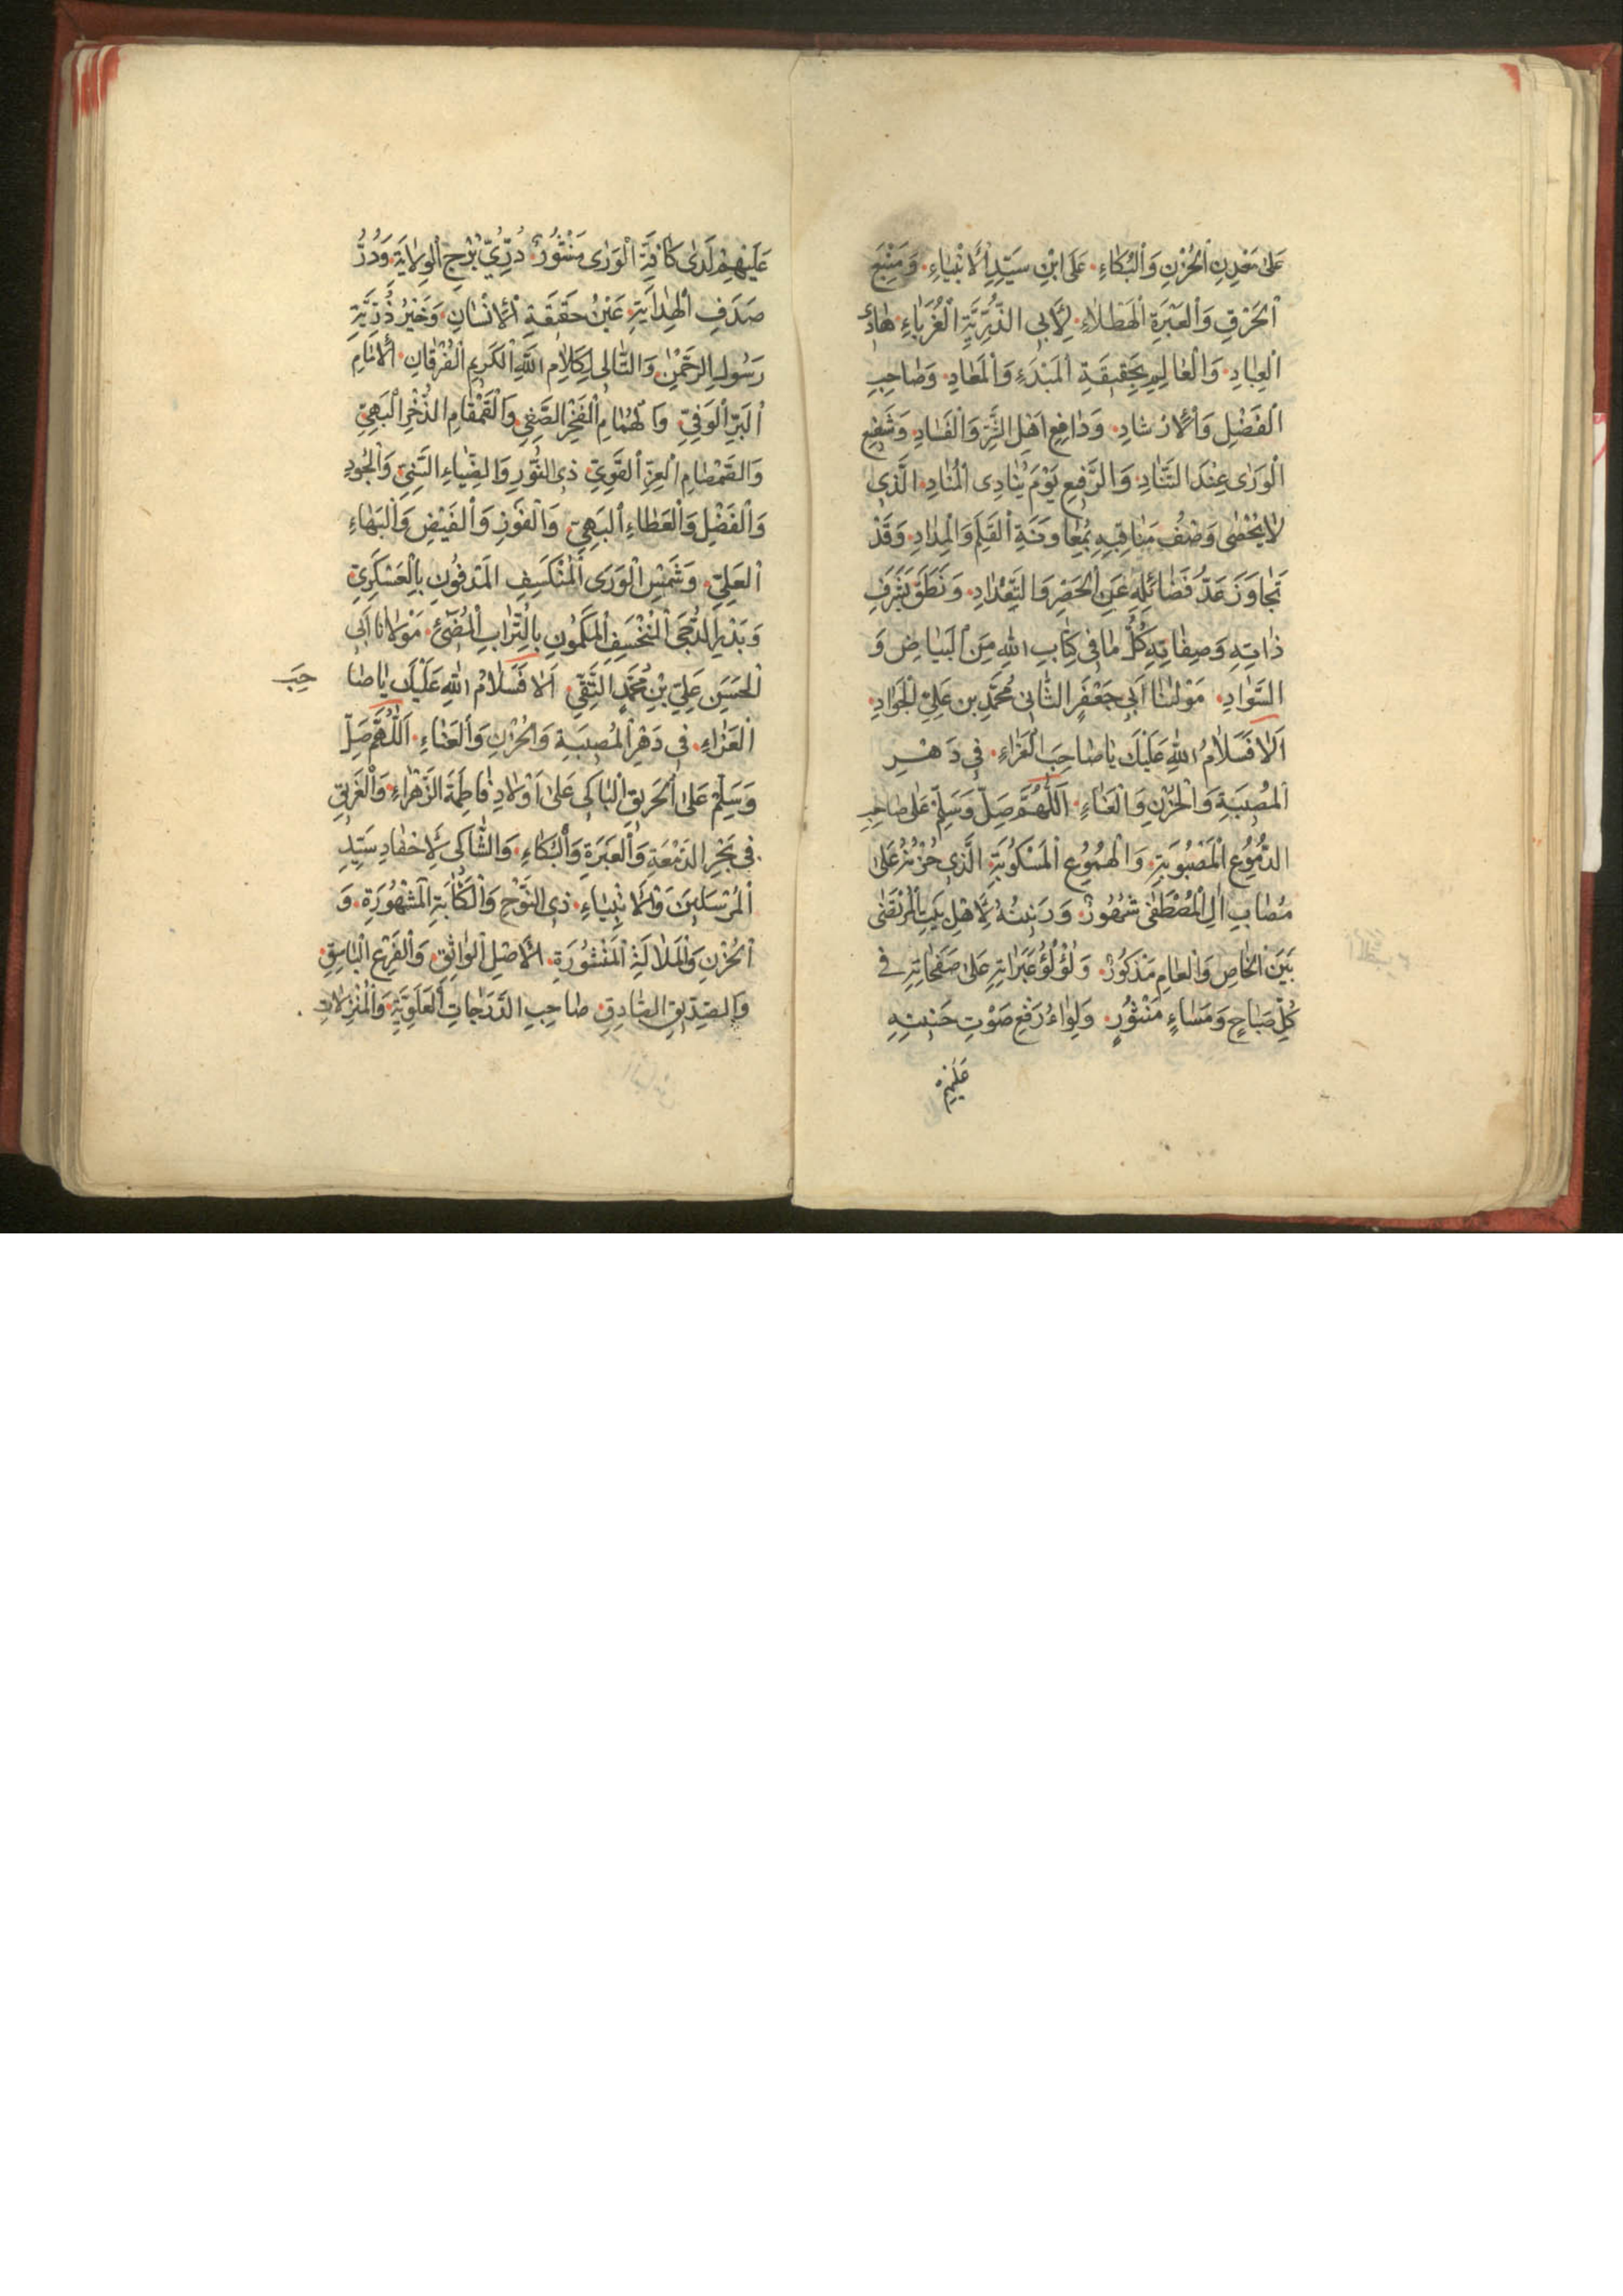 عَلىٰ مَعْدِنِ الْحُزْنِ وَالْبُكَاءِ۰ عَلَى ابْنِ سَيِّدِ الْأَنْبِيَاءِ۰ وَمَنْبَعِ
الْحَرَقِ وَالْعَبْرَةِ الْهَطْلَاءِ۰ لِأَبِي الذُّرِّيَّةِ الْغُرَبَاءِ۰ هَادِ
الْعِبَادِ۰ وَالْعَالِمِ بِحَقِيقَةِ الْمَبْدَءِ وَالْمَعَادِ۰ وَصَاحِبِ
الْفَضْلِ وَالْإِرْشَادِ۰ وَدَافِعِ اَهْلِ الشَّرِّ وَالْفَسَادِ۰ وَشَفِيعِ
الْوَرىٰ عِنْدَ التَّنَادِ۰ وَالرَّفِيعِ يَوْمَ يُنَادِى الْمُنَادِ۰ الَّذِى
لَا يُحْصىٰ وَصْفُ مَنَاقِبِهِ بِمُعَاوَنَةِ الْقَلَمِ وَالْمِدَادِ۰ وَقَدْ
تَجَاوَزَ عَدُّ فَضَائِلِهِ عَنِ الْحَصْرِ وَالتِّعْدَادِ۰ وَنَطَقَ بِشَرَفِ
ذَاتِهِ وَصِفَاتِهِ كُلُّ مَا فِى كِتَابِ اللهِ مِنَ الْبَيَاضِ وَ
السَّوَادِ۰ مَوْلٰنَا اَبِي جَعْفَرٍ الثَّانِى مُحَمَّدِ بنِ عَلِيٍّ الْجَوَادِ۰
اَلَا فَسَلَامُ اللهِ عَلَيْكَ يَا صَاحِبَ الْعَزَاءِ۰ فِي دَهْرِ
الْمُصِيبَةِ وَالْحُزْنِ وَالْعَنَاءِ۰ اَللّٰهُمَّ صَلِّ وَسَلِّمْ عَلىٰ صَاحِبِ
الدُّمُوعِ الْمَصْبُوبَةِ۰ وَالْهُمُوعِ الْمَسْكُوبَةِ۰ الَّذِي حُزْنُهُ عَلىٰ
مُصَابِ اٰلِ الْمُصْطَفىٰ مَشْهُورٌ۰ وَرَنِينُهُ لِأَهْلِ بَيْتِ الْمُرْتَضىٰ
بَيْنَ الْخَاصِ وَالْعَامِ مَذْكُورٌ۰ وَلُؤْلُؤُ عَبَرَاتِهِ عَلىٰ صَفَحَاتِهِ فِى
كُلِّ صَبَاحٍ وَمَسَاءٍ مَنْثُورٌ۰ وَلِوَاءُ رَفْعِ صَوْتِ حَنِينِهِ
عَلَيْهِمْ
عَلَيْهِمْ لَدىٰ كَافَّةِ الْوَرىٰ مَنْشُورٌ۰ دُرِّيِّ بُرْجِ الْوِلَايَةِ۰ وَدُرِّ
صَدَفِ الْهِدَايَةِ۰ عَيْنُ حَقِيقَةِ الْإِنْسَانِ۰ وَخَيْرُ ذُرِّيَّةِ
رَسُولِ الرَّحْمٰنِ۰ وَالتَّالِى لِكَلَامِ اللهِ الْكَرِيمِ الْفُرْقَانِ۰ الْاِمَامِ
الْبَرِّ الْوَفِيِّ۰ وَالْهُمَامِ الْفَخْرِ الصَّفِيِّ۰ وَالْقَمْقَامِ الذُّخْرِ الْبَهِيِّ
وَالصَّمْصَامِ الْعِزِّ الْقَوِيِّ۰ ذِى النُّورِ وَالضِّيَاءِ السَّنِيِّ۰ وَالْجُودِ
وَالْفَضْلِ وَالْعَطَاءِ الْبَهِيِّ۰ وَالْفَوْزِ وَالْفَيْضِ وَالْبَهَاءِ
الْعَلِيِّ۰ وَشَمْسِ الْوَرَى الْمُنْكَسِفِ الْمَدْفُونِ بِالْعَسْكَرِيِّ۰
وَبَدْرِ الدُّجَى الْمُنْخَسِفِ الْمَكْمُونِ بِالتُّرَابِ الْمُضِيءِ۰ مَوْلَانَا اَبِى
الْحَسَنِ عَلِيِّ بْنِ مُحَمَّدٍ النَّقِيِّ۰ اَلَا فَسَلَامُ اللهِ عَلَيْكَ يَا صَا حِبَ
الْعَزَاءِ۰ فِى دَهْرِ الْمُصِيبَةِ وَالْحُزْنِ وَالْعَنَاءِ۰ اَللّٰهُمَّ صَلِّ
وَسَلِّمْ عَلَى الْحَرِيقِ الْبَاكِى عَلىٰ اَوْلَادِ فَاطِمَةَ الزَّهْرَاءِ۰ وَالْغَرِيقِ
فِى بَحْرِ الدَّمْعَةِ وَالْعَبَرَةِ وَالْبُكَاءِ۰ وَالشَّاكِى لِاَحْفَادِ سَيِّدِ
الْمُرْسَلِينَ وَالْاَنْبِيَاءِ۰ ذِى النَّوْحِ وَالْكَآبَةِ الْمَشْهُورَةِ۰ وَ
الْحُزْنِ وَالْمَلَالَةِ الْمَنْشُورَةِ۰ الْاَصْلِ الْوَاثِقِ۰ وَالْفَرْعِ الْبَاسِقِ۰
وَالصِّدِّيقِ الصَّادِقِ۰ صَاحِبِ الدَّرَجَاتِ الْعَلَوِيَّةِ۰ وَالْمَنْزِلَاتِ